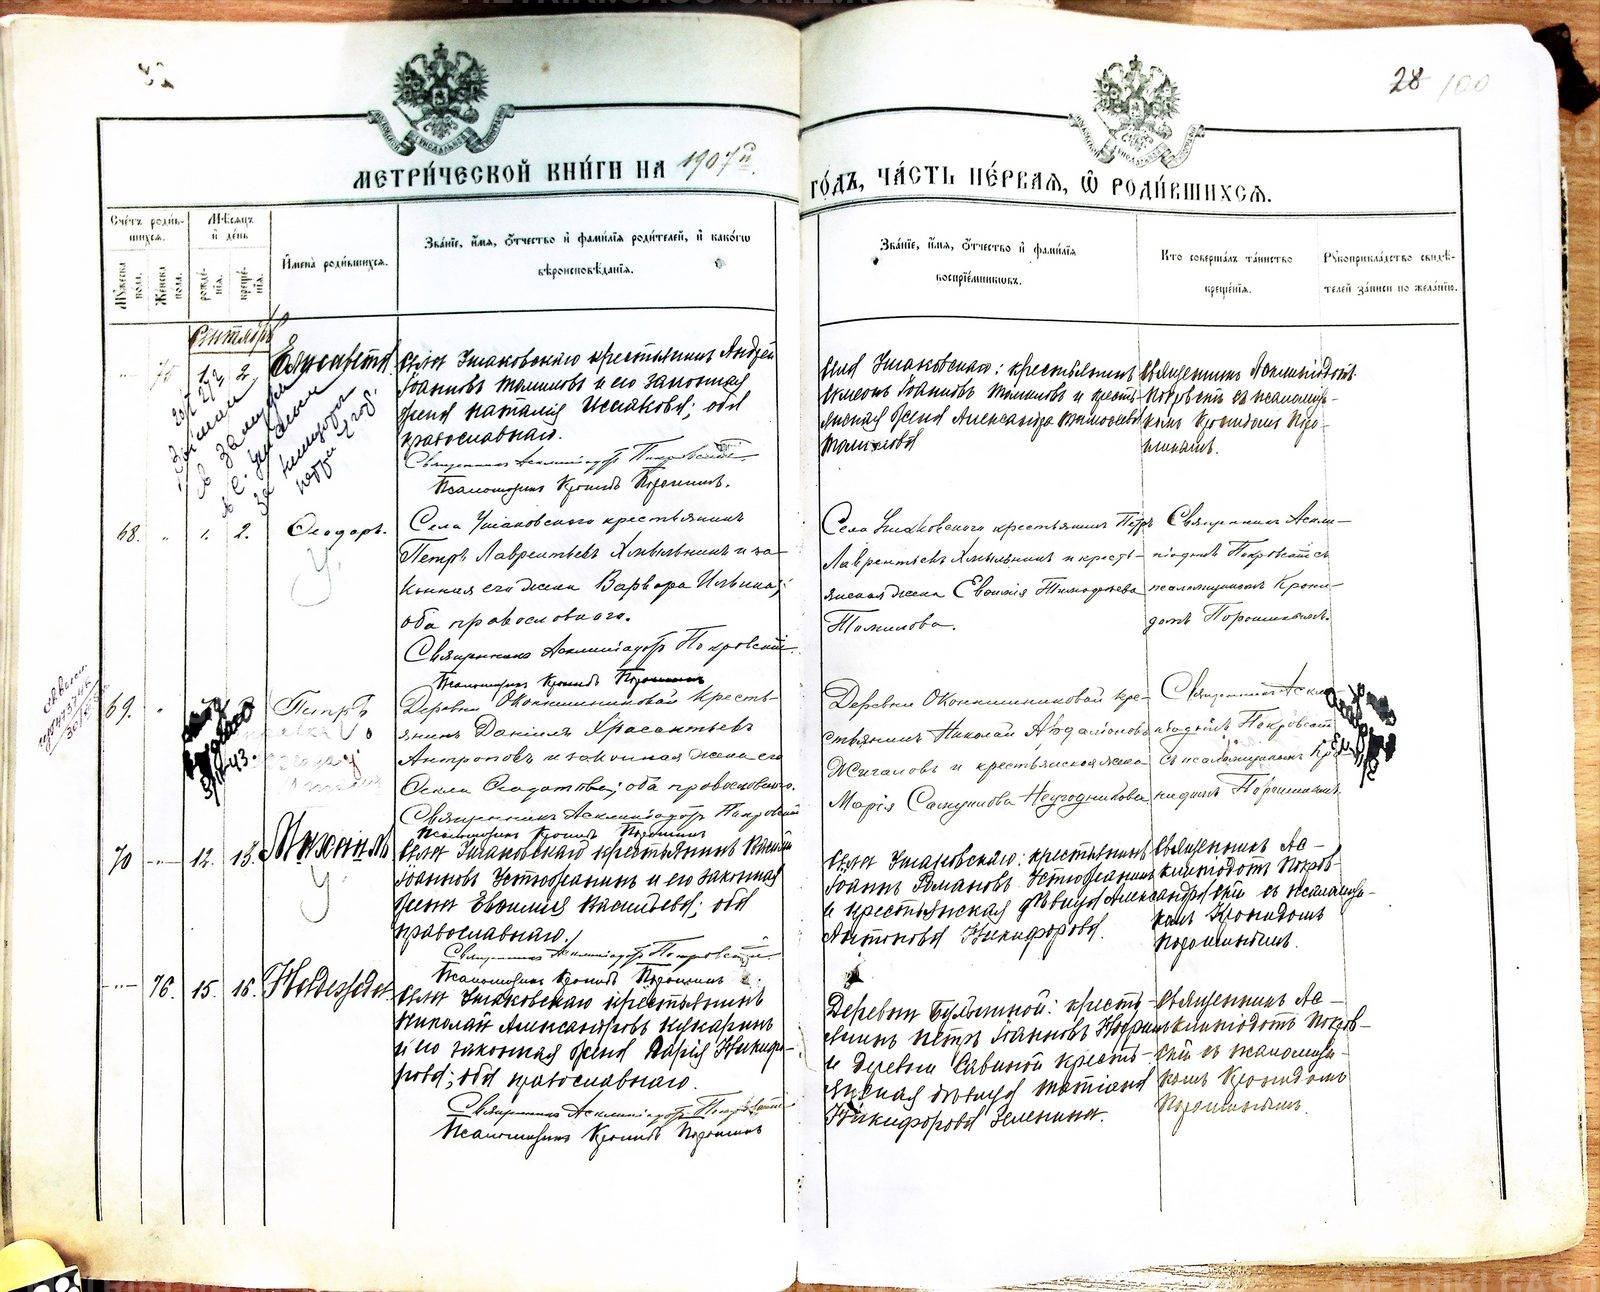 28 100
МЕТРИ́ЧЕСКОЙ КНИ́ГИ НА 1907й
ГО́ДЪ, ЧА́СТЬ ПЕ́РВАЯ, Ѽ РОДИ́ВШИХСЯ.
Сче́тъ роди́в-
шихся.
Му́жеска
пола.
Же́нска
пола.
Мѣ́сяцъ
и де́нь
рожде́-
нія.
креще́-
нія.
Имена̀ роди́вшихся.
Зва́ніе, и́мя, ѻ́тчество и фами́лія роди́телей, и како́гѡ
вѣроисповѣ́данія.
Зва́ніе, и́мя, ѻ́тчество и фами́лія
воспріе́мникѡвъ.
Кто соверша́лъ та́инство
креще́нія.
Рꙋкоприкла́дство свидѣ́-
телей за́писи по жела́нію.
Сентябрь
75 1. 2. Елисавета
Села Ушаковскаго крестьянинъ Андрей
Іоанновъ Томиловъ и его законная
жена Наталія Исаакова; оба
православнаго.
Священникъ Асклипіодотъ Покровскій
Псаломщикъ Кронидъ Порошинъ.
Села Ушаковскаго: крестьянинъ
Симеонъ Іоанновъ Томиловъ и кресть-
янская жена Александра Тимофеева
Томилова
Священникъ Асклипіодотъ
Покровскій съ псаломщи-
комъ Кронидомъ Поро-
шинымъ.
68. 1. 2. Ѳеодоръ.
Села Ушаковского крестьянинъ
Петръ Лаврентьевъ Хмѣлынинъ и за-
конная его жена Варвара Ильина;
оба православного.
Священникъ Асклипіодотъ Покровскій.
Псаломщикъ Кронидъ Порошинъ
Села Ушаковского крестьянинъ Петръ
Лаврентьевъ Хмѣлынинъ и кресть-
янская жена Евѳимія Тимофеева
Томилова.
Священникъ Аскли-
піодотъ Покровскій съ
псаломщикомъ Крони-
домъ Порошинымъ.
69. Петръ
Деревни Оконишниковой кресть-
янинъ Даніилъ Хрисантьевъ
Антроповъ и законная жена его
Ѳекла Ѳеодотова; оба православного.
Священникъ Асклипіодотъ Покровскій
Псаломщикъ Кронидъ Порошинъ
Деревни Оконишниковой кре-
стьянинъ Николай Авдаліоновъ
Жигаловъ и крестьянская жена
Марія Самуилова Неугодникова
Священникъ Аскли-
піодотъ Покровскій
съ псаломщикомъ Кро-
нидомъ Порошинымъ.
70 12. 13. Михаилъ
Села Ушаковскаго крестьянинъ Василій
Іоанновъ Устюжанинъ и его законная
жена Евѳимія Васильева; оба
православнаго.
Священникъ Асклипіодотъ Покровскій
Псаломщикъ Кронидъ Порошинъ
Села Ушаковскаго: крестьянинъ
Іоаннъ Романовъ Устюжанинъ
и крестьянская дѣвица Александра
Антонова Никифорова.
Священникъ Ас-
клипіодотъ Покров-
скій съ псаломщи-
комъ Кронидомъ
Порошинымъ.
76. 15. 16.
Села Ушаковскаго крестьянинъ
Николай Александровъ Кукаринъ
и его законная жена Дарія Никифо-
рова; оба православнаго.
Священникъ Асклипіодотъ Покровскій
Псаломщикъ Кронидъ Порошинъ
и деревни Савиной кресть-
янская дѣвица Татіана
Никифорова Зеленина.
Священникъ Ас-
клипіодотъ Покров-
скій съ псаломщи-
комъ Кронидомъ
Порошинымъ.